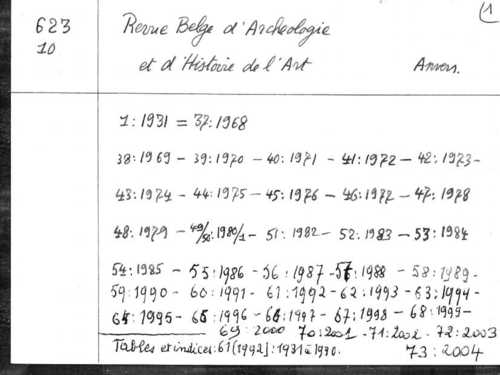 (1
623
10
Revue Belge d'Archéologie
et d'Histoire de l'Art Anvers.
1:1931 = 37:1968
38:1969 - 39:1970 - 40:1971 - 41:1972 - 42:1973-
43:1974 - 44:1975 - 45:1976 - 46:1977 - 47:1978
48:1979 - 49/50:1980/1 - 51:1982 - 52:1983 - 53:1984
54:1985 - 55:1986 - 56:1987 - 57:1988 - 58:1989-
59:1990 - 60:1991 - 61:1992 - 62:1993 - 63:1994-
64:1995 - 65:1996 - 66:1997 - 67:1998 - 68:1999-
69:2000 70:2001 - 71:2002 - 72:2003
Tables et indices: 61(1992]: 1931 à 1990. 73:2004